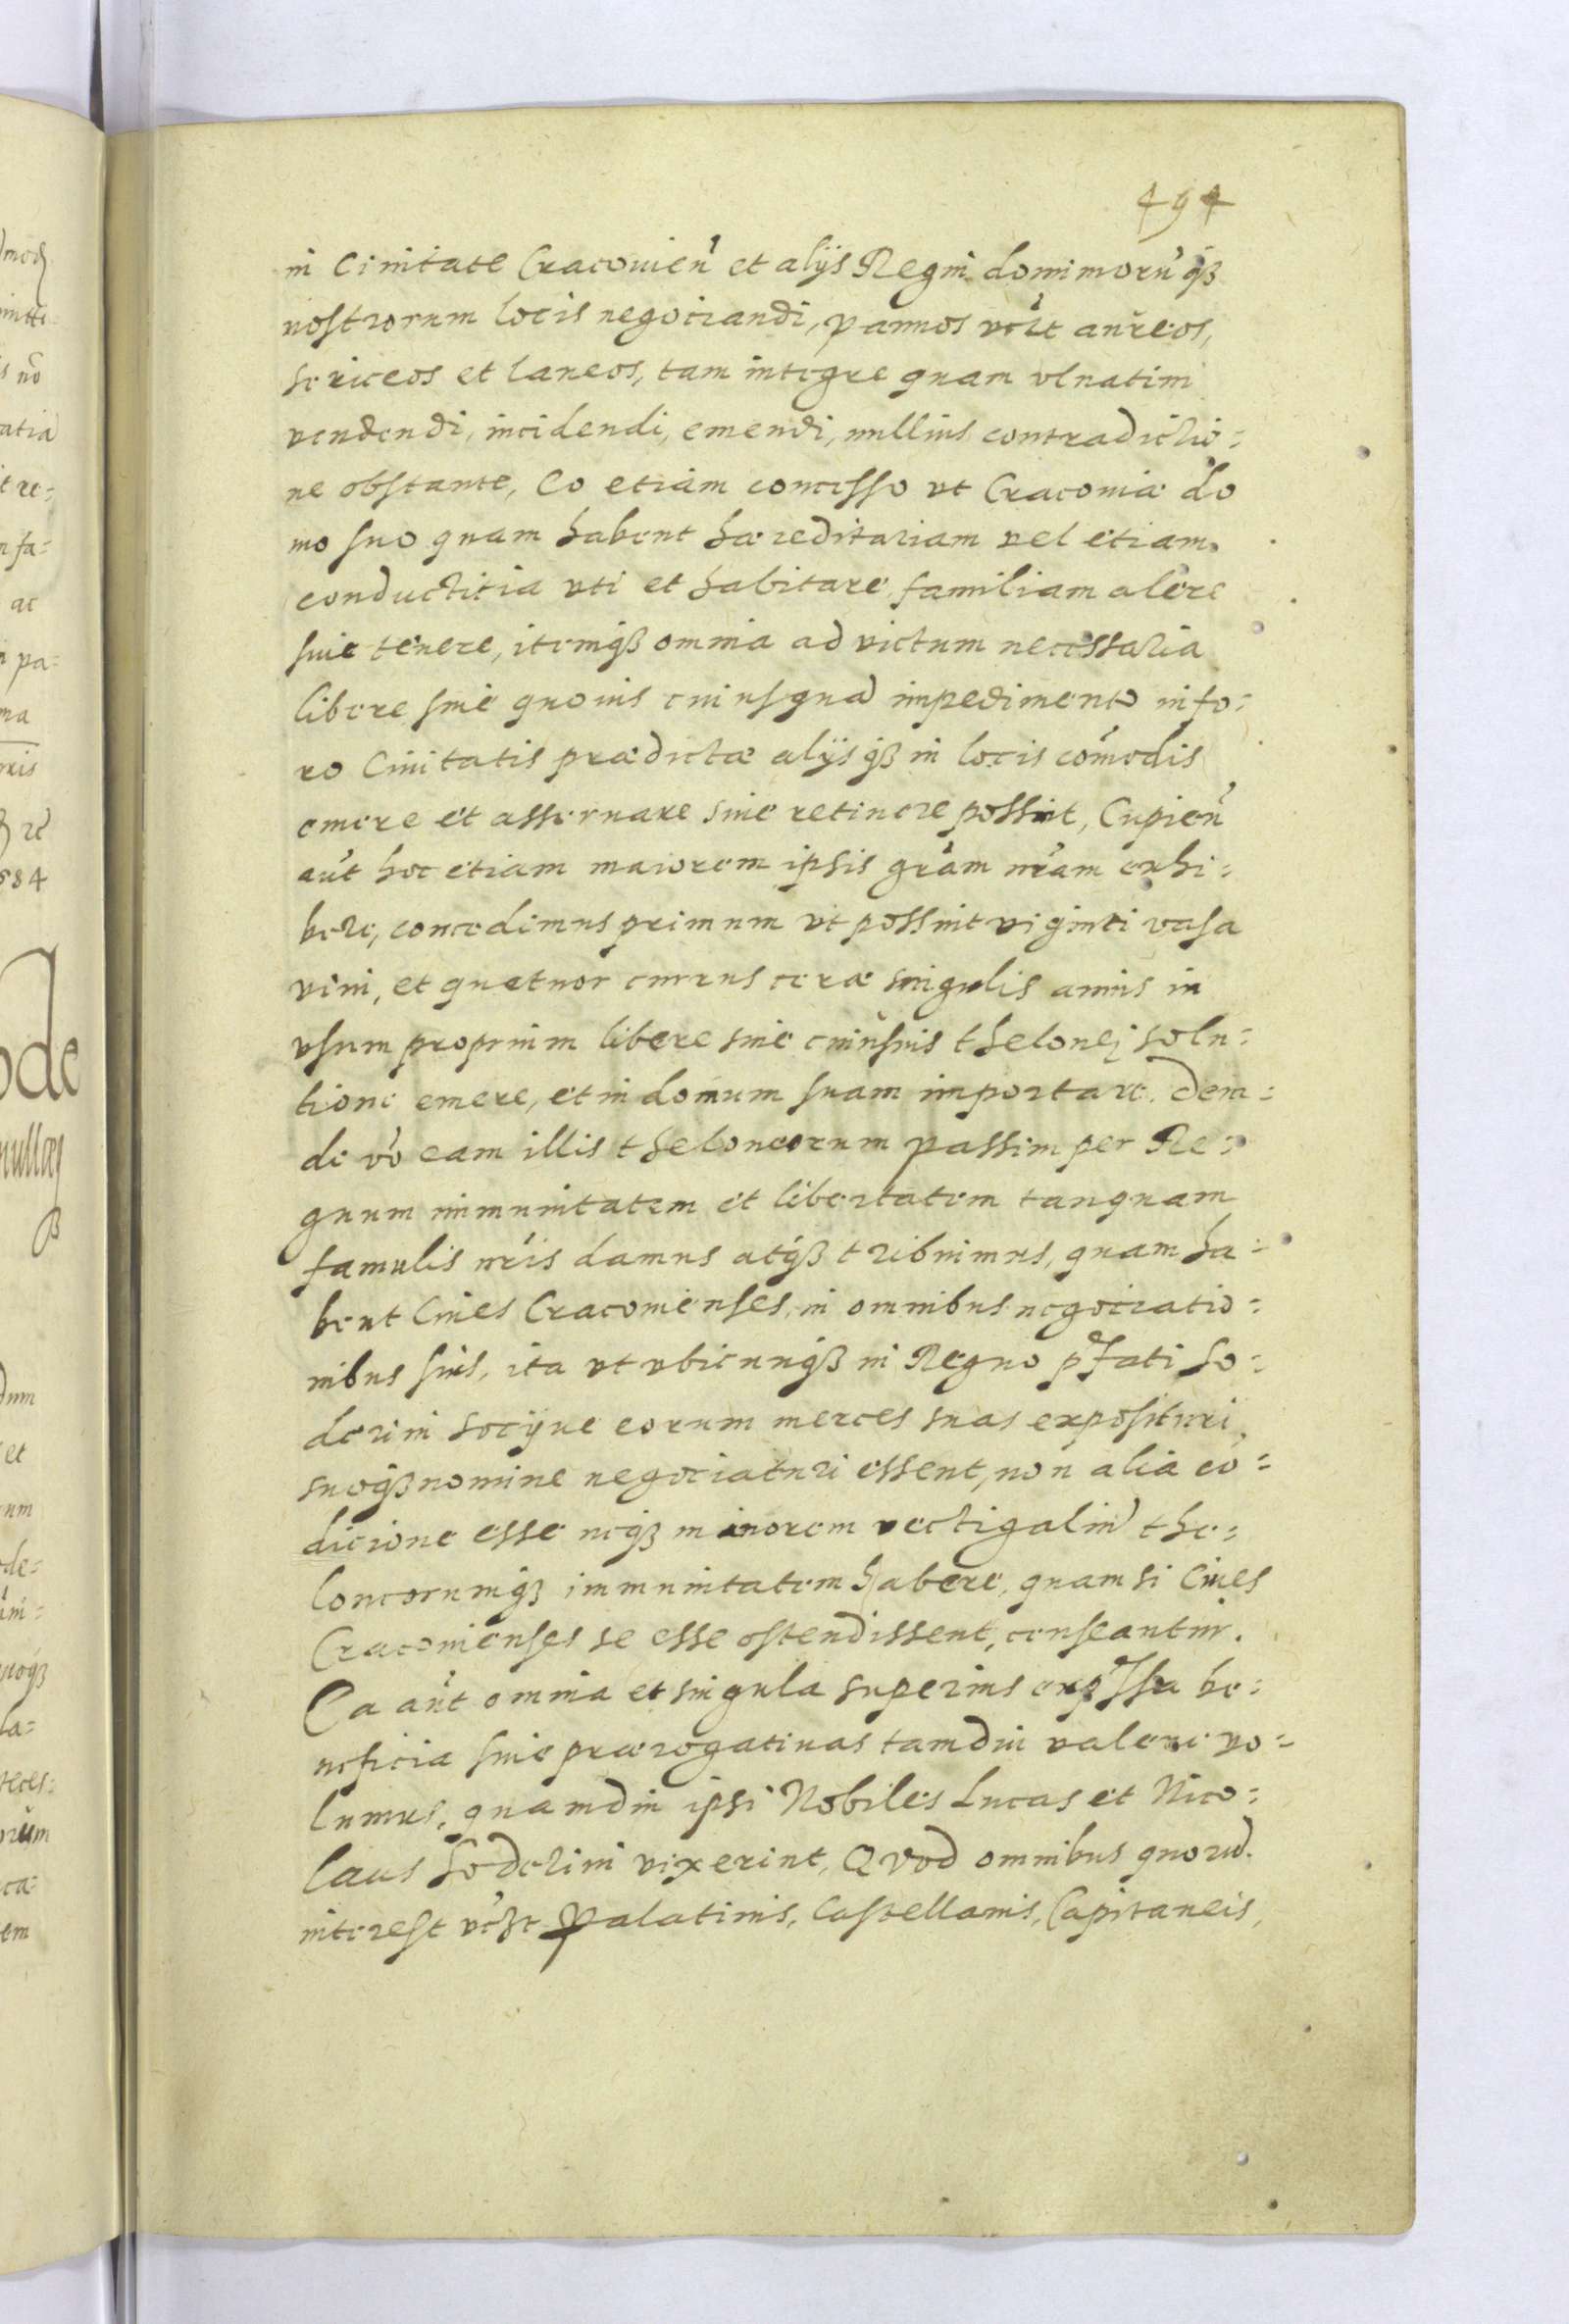 494
in Ciuitate Cracouień et alijs Regni dominiorū qȝ
nostrorum locis negociandi, pannos vĕlt aureos,
sericeos et laneos, tam integre quam vlnatim
vendendi, incidendi, emendi, nullius contradictio=
ne obstante, Eo etiam concesso vt Cracouiæ do
mo suo quam habent hæreditariam vel etiam
conductitia vti et habitare familiam alere
siue tenere, itemqȝ omnia ad victum necessaria
libere siue quouis cuiusquā impedimento in fo=
ro Ciuitatis prædictæ alijsqȝ in locis cōmodis
emere et asseruare siue retinere possint, Cupień
aūt hoc etiam maiorem ipsis grām nrām exhi=
bere, concedimus primum vt possint viginti vasa
vini, et quatuor currus ceræ singulis annis in
vsum proprium libere sine cuiusuis thelonej solu=
tione emere, et in domum suam importare. Dein=
de vō eam illis theloneorum passim per Re=
gnum immunitatem et libertatem tanquam
famulis nrīs damus atqȝ tribuimus, quam ha=
bent Ciues Cracouienses in omnibus negociatio=
nibus suis, ita vt vbicunqȝ in Regno pfati So=
derini socijue eorum merces suas exposituri,
suoqȝ nomine negociaturi essent, non alia cō=
dicione esse neqȝ minorem vectigaliū the=
loneorumqȝ immunitatem habere, quam si Ciues
Cracouienses se esse ostendissent, censeantur.
Ea aūt omnia et singula superius expssa be=
neficia siue prærogatiuas tamdiu valere vo=
lumus, quamdiu ipsi Nobiles Lucas et Nico=
laus Soderini vixerint, Quod omnibus quorū
interest vĕlt Palatinis, Castellanis, Capitaneis,